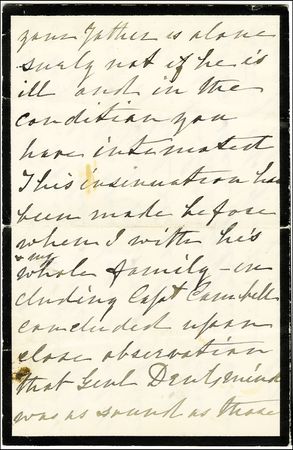 your Father is alone
surly not if he is
ill and in the
condition you
have intemated
This insinuation has
been made before
when I with his
& my
whole family - in
cluding Capt Campbell
concluded upon
close observation
that Genl Dent, mind
was as sound as those